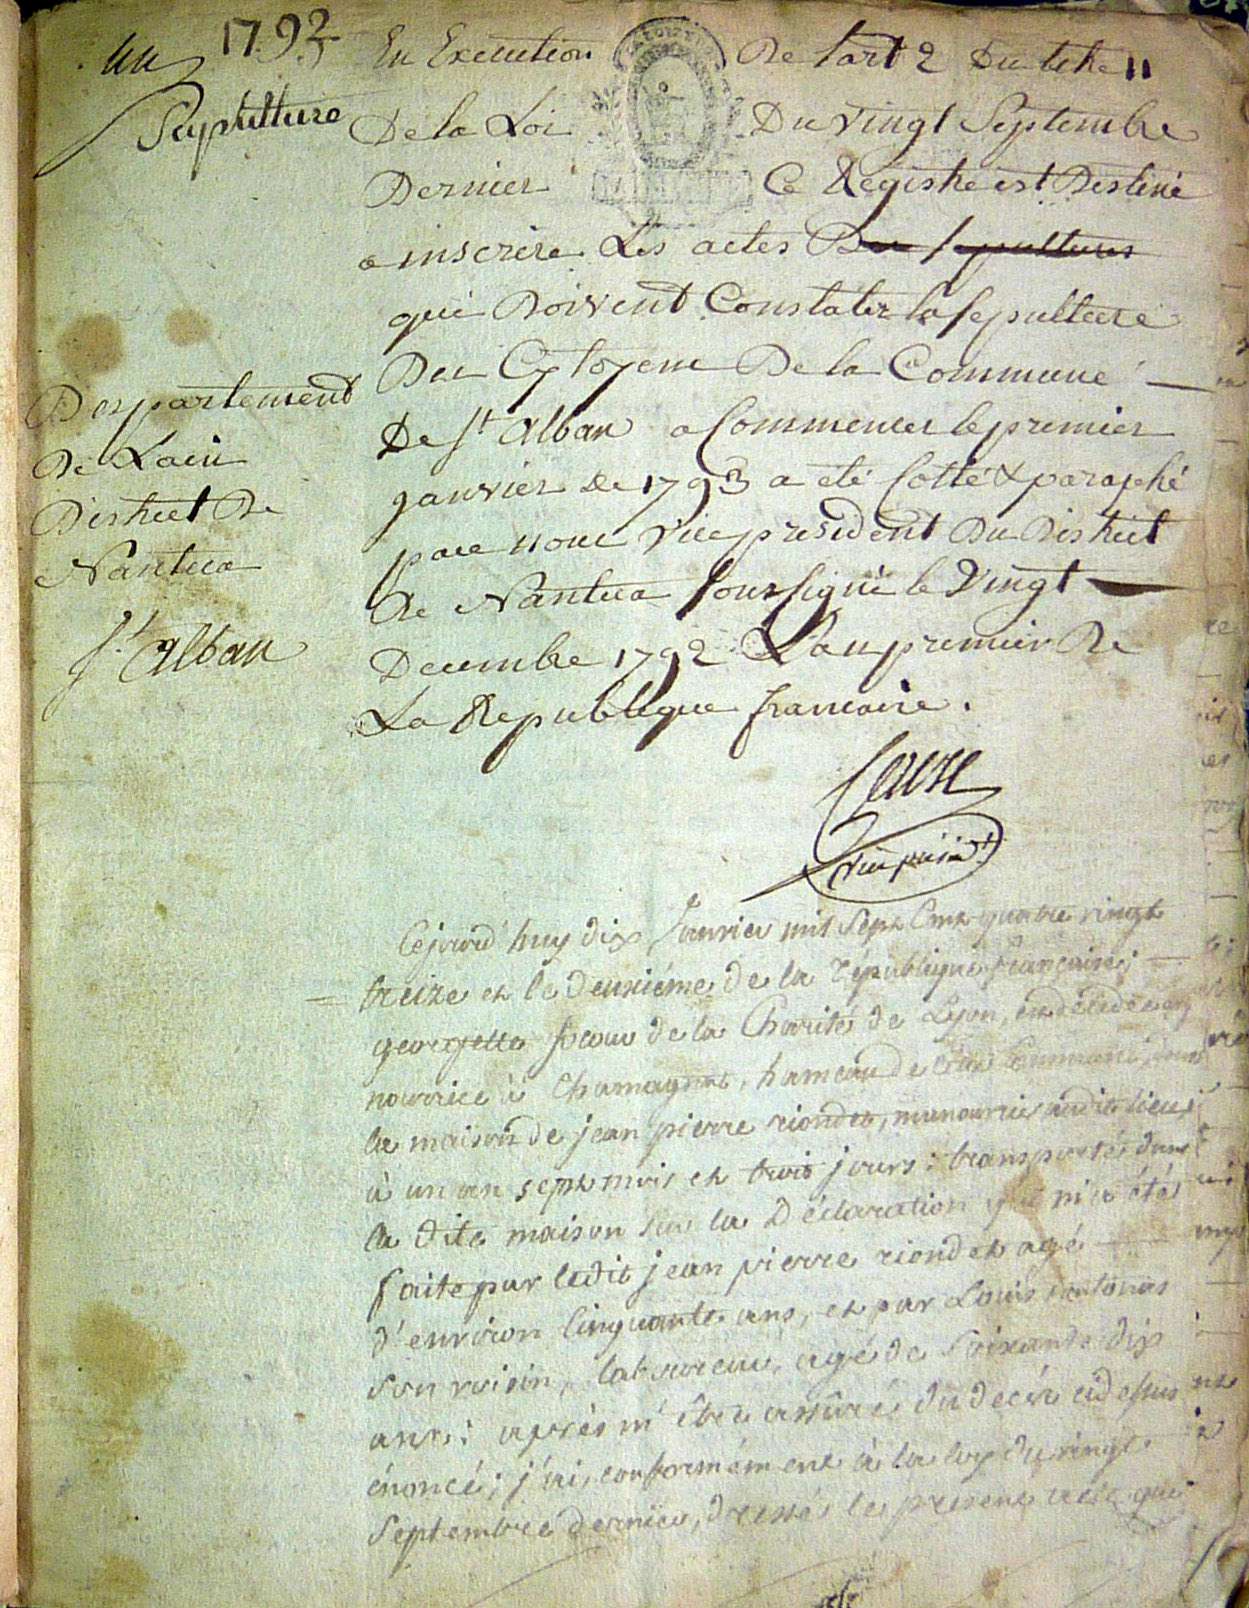 un
1792
Sepulture
En Execution De l'art 2 Du titre 11
De la Loi Du Vingt Septembre
Dernier Ce Registre est Destiné
a inscrire Les actes Des sepultures
qui Doivent Constater la sepulture
Des Cytoyens De la Commune
De St alban a Commencer le premier
janvier de 1793 a été Cotté & paraphé
par nous Vice president Du District
De Nantua soussigné le Vingt
Decembre 1792 L'an premier De
La Republique francaise.
vice president
Departement
De Lain
District De
Nantua
St alban
Cejourd'huy dix Janvier mil Sept Cent quatre vingt
treize et le deuxiéme de la République françaises
georgette de la Charité de Lyon, est décédée en
nourrice à Chamagnat, hameau de cette Commune, dans
la maison de jean pierre riondet, audit lieu,
à un an sept mois et trois jours: transporté dans
la dite maison sur la Déclaration que m'a étés
faite par ledit jean pierre riondet agé
d'environ Cinquante ans, et par Louis
son voisin, laboureur, agé de Soixante dix
ans: après m'être assuré du decès cidessus
énoncé; j'ai, conformément à la loy du vingt
Septembre dernier, dressés le present acte que